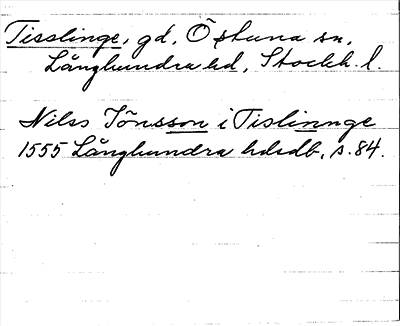 Tisslinge, gd, Östuna sn,
Långhundra hd, Stockh. l.
Nilss Jönsson i Tislinnge
1555 Långhundra hdsdb, s. 84.